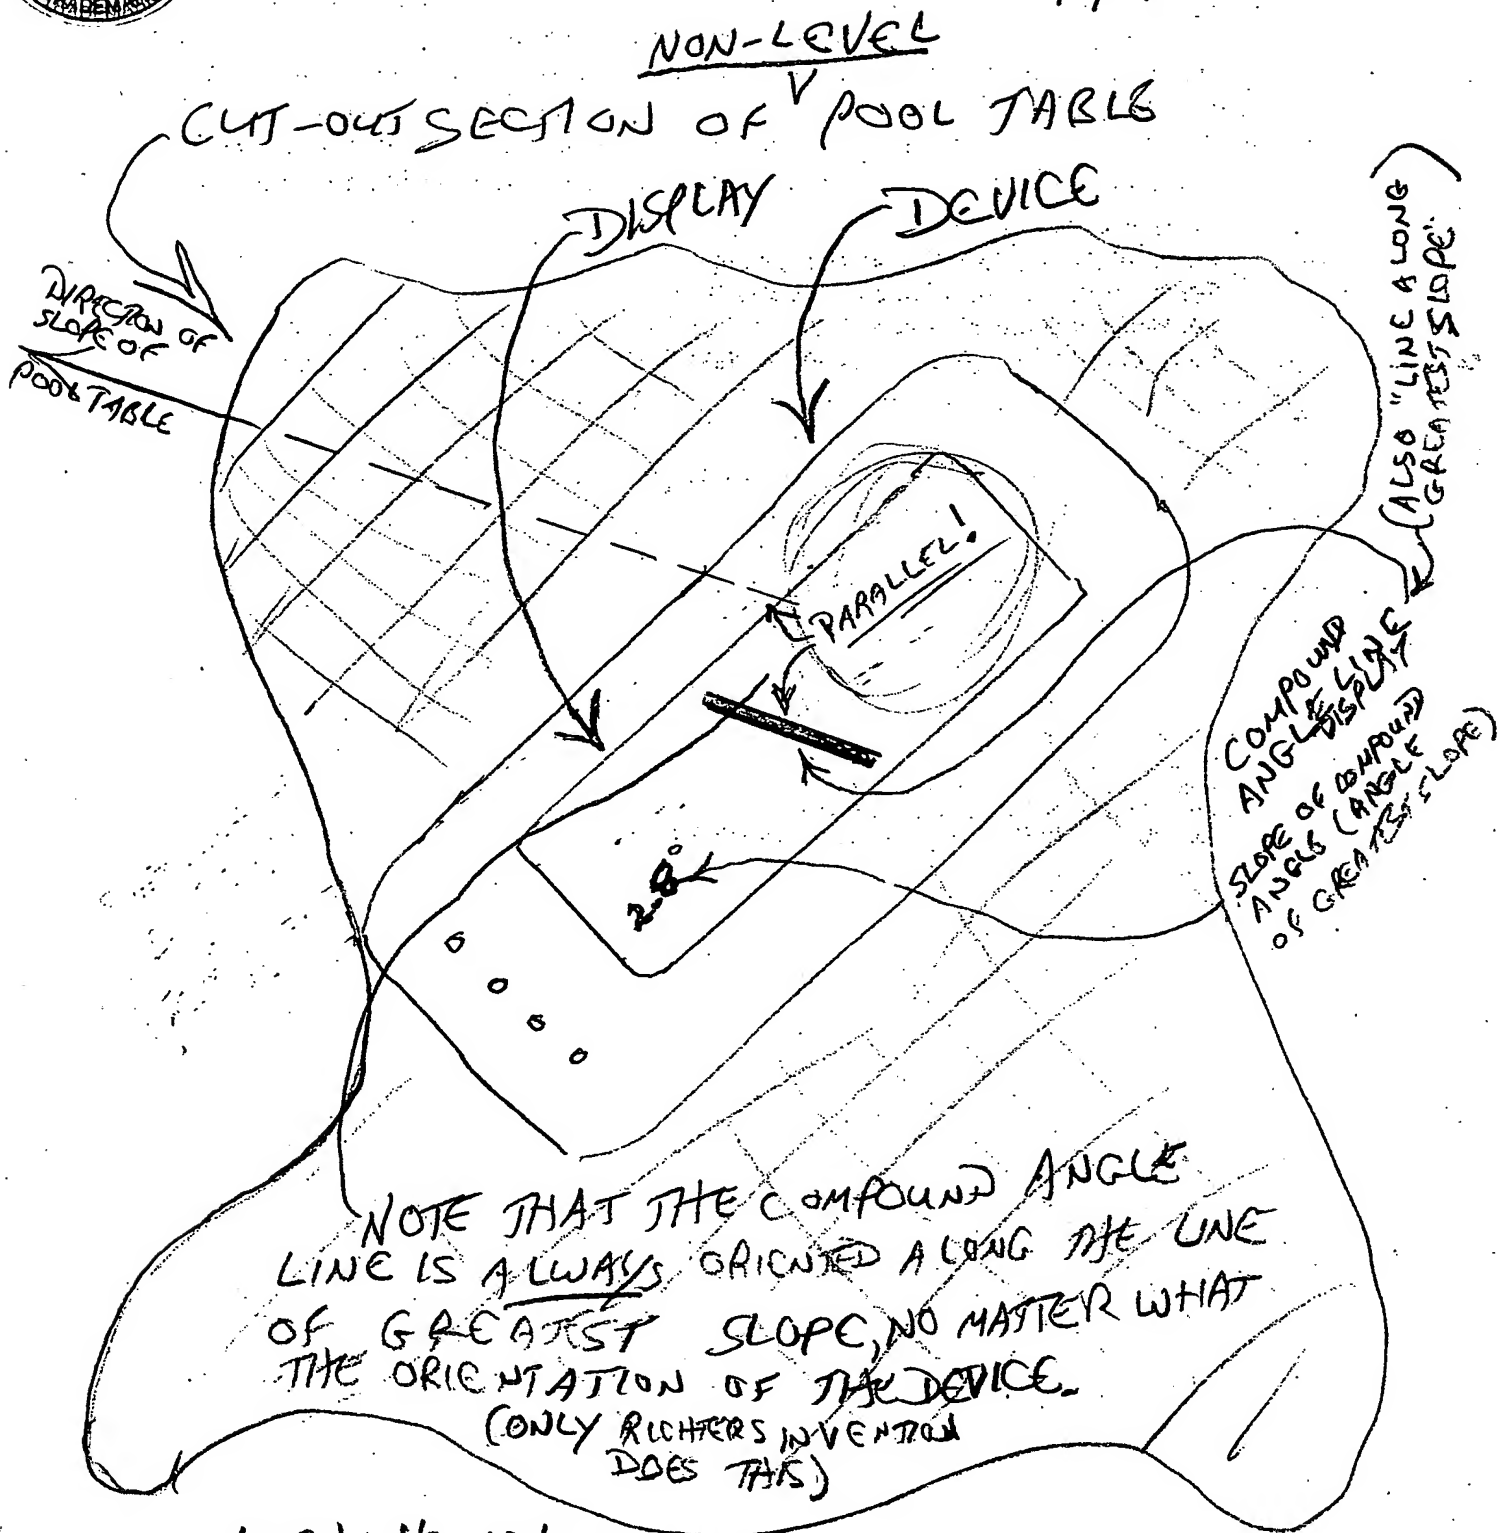 NON-LEVEL
CUT-OUT SECTION OF POOL TABLE
DISPLAY
DEVICE
DIRECTION OF
SLOPE OF
POOL TABLE
(ALSO "LINE ALONG
GREATEST SLOPE")
PARALLEL!
COMPOUND
ANGLE LINE
DISPLAY
SLOPE OF COMPOUND
ANGLE (ANGLE
OF GREATEST SLOPE)
2.8°
NOTE THAT THE COMPOUND ANGLE
LINE IS ALWAYS ORIENTED ALONG THE LINE
OF GREATEST SLOPE, NO MATTER WHAT
THE ORIENTATION OF THE DEVICE.
(ONLY RICHTERS INVENTION
DOES THIS)